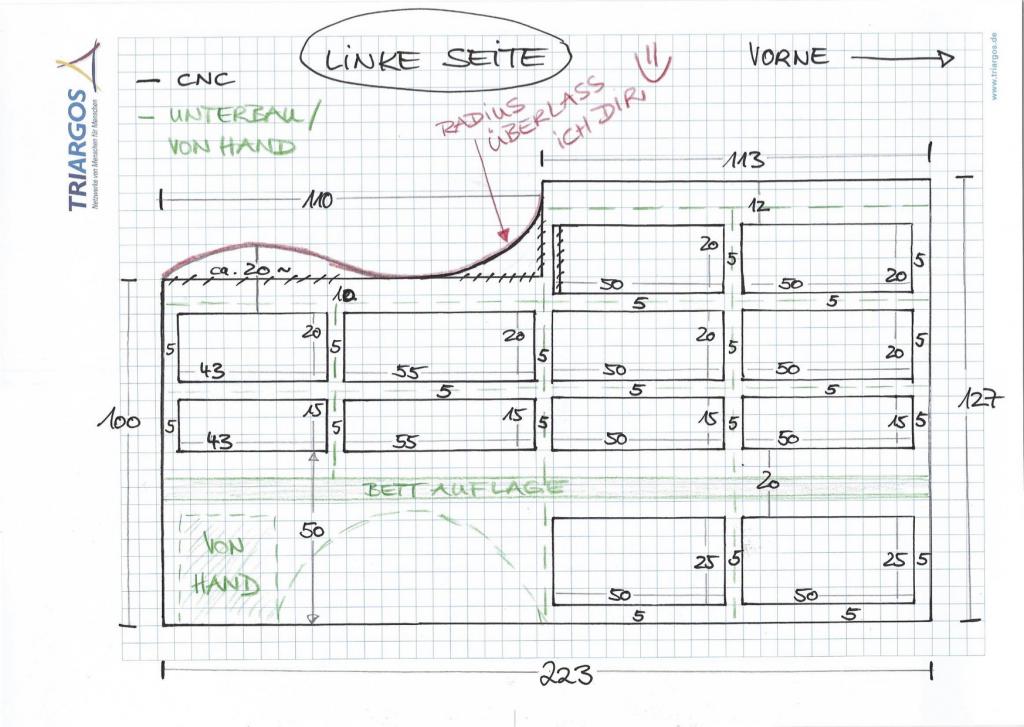 LINKE SEITE
VORNE
www.triargos.de
TRIARGOS
Netzwerke von Menschen für Menschen
— CNC
— UNTERBAU /
VON HAND
RADIUS
ÜBERLASS
ICH DIR,
113
110
12
ca. 20 ~
20
5
50
20
5
50
10
5
5
5
20
43
5
20
55
5
20
50
5
20
50
5
5
5
5
15
43
5
15
55
5
15
50
5
15
50
5
100
127
BETT AUFLAGE
20
50
VON
HAND
25
50
5
25
50
5
5
5
223